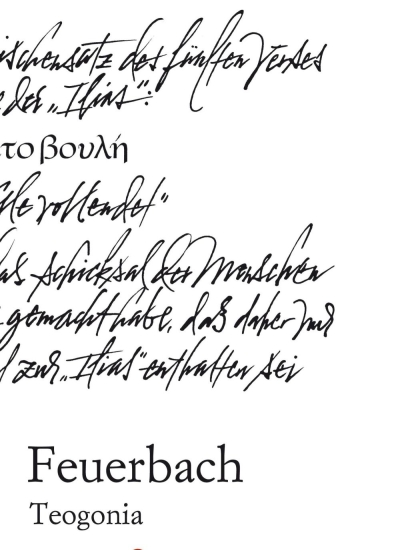 ischensatz des fünften Verses
der „Ilias“:
το βουλή
lle vollendet“
as Schicksal der Menschen
gemacht habe, daß daher nur
l zur „Ilias“ enthalten sei
Feuerbach
Teogonia